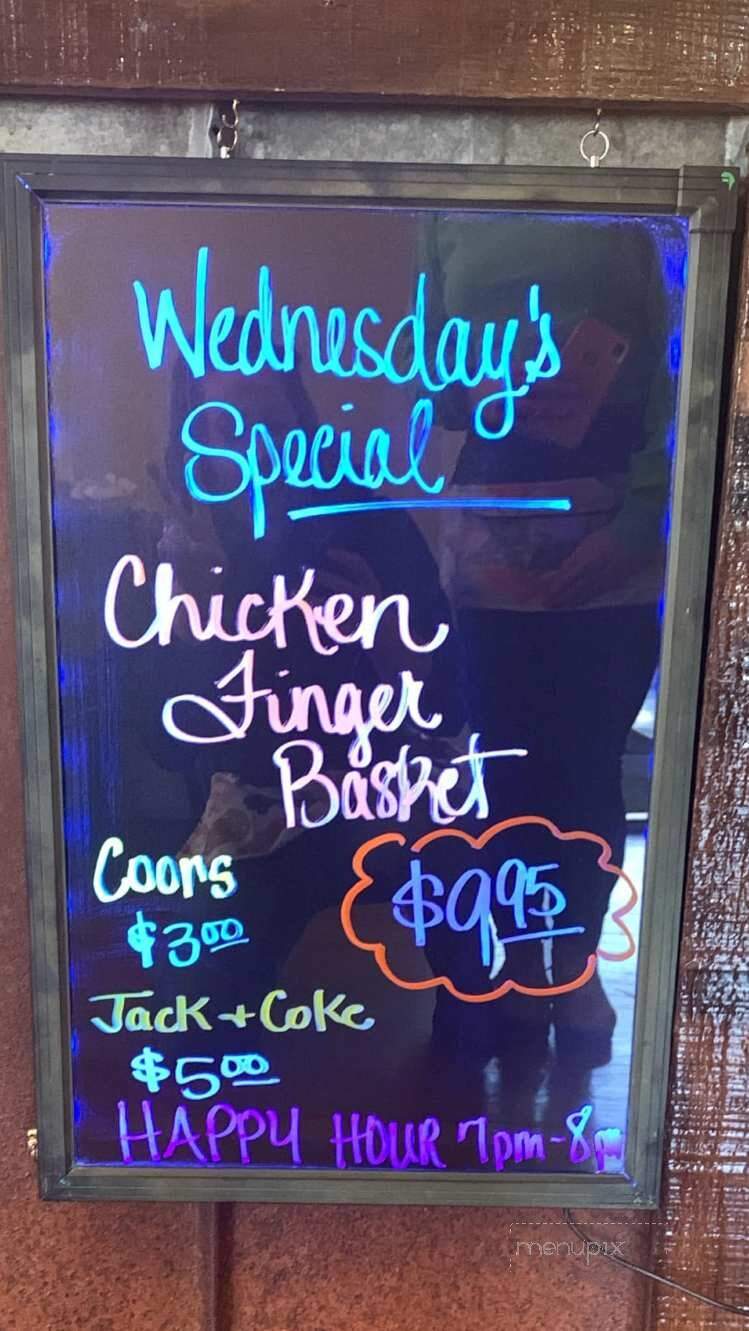 Wednesday's
Special
Chicken
Finger
Basket
Coors
$3.00
$9.95
Jack + Coke
$5.00
HAPPY HOUR 7pm-8pm
menupix